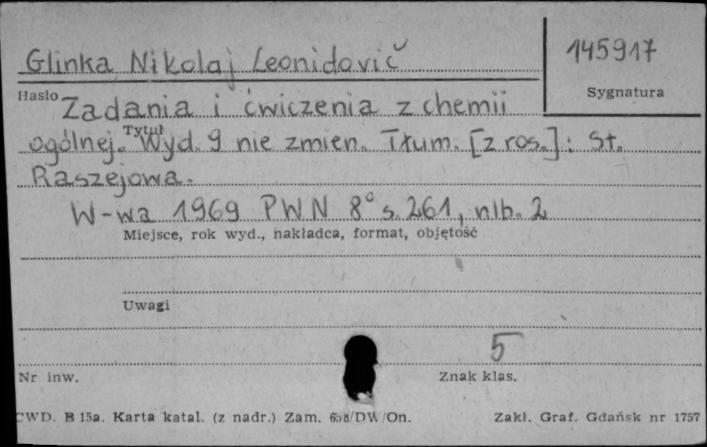 Glinka Nikolaj Leonidovič
145917
Hasło
Sygnatura
Zadania i ćwiczenia z chemii
Tytuł
ogólnej. Wyd. 9 nie zmien. Tłum. [z ros.]: St.
Raszejowa.
W-wa 1969 PWN 8° s. 261, nlb. 2
Miejsce, rok wyd., nakładca, format, objętość
Uwagi
5
Nr inw.
Znak klas.
CWD. B 15a. Karta katal. (z nadr.) Zam. /DW/On.
Zakł. Graf. Gdańsk nr 1757